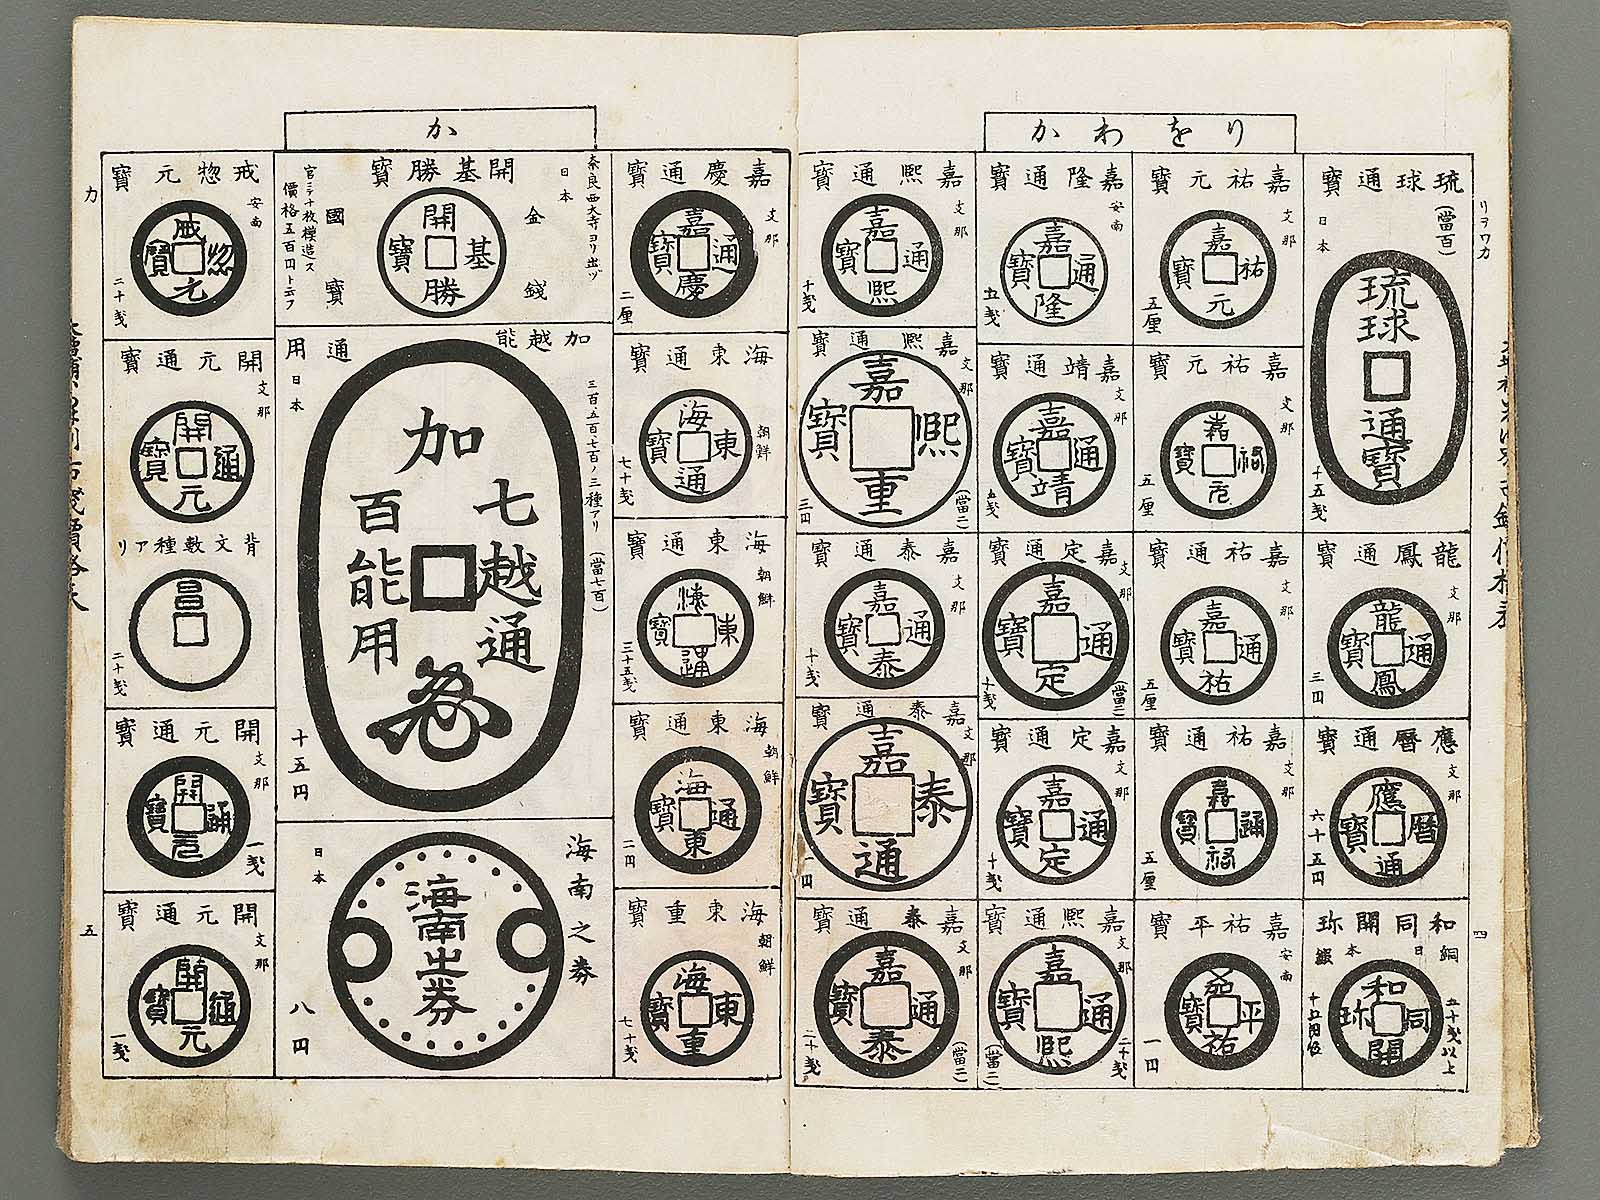 りをわか
リヲワカ
琉球通寶
(當百)
日本
琉球
通寶
十五戔
龍鳳通寶
支那
龍鳳通寶
三円
應曆通寶
支那
應曆通寶
六十五円
和同開珎
日本
銅
五十戔以上
銀
十五円位
和同開珎
四
嘉祐元寶
支那
嘉祐元寶
五厘
嘉祐元寶
支那
嘉祐元寶
五厘
嘉祐通寶
支那
嘉祐通寶
五厘
嘉祐通寶
支那
嘉祐通寶
五厘
嘉祐平寶
安南
平祐寶
一円
嘉隆通寶
安南
嘉隆通寶
五戔
嘉靖通寶
支那
嘉靖通寶
五戔
嘉定通寶
支那
嘉定通寶
(當二)
十戔
嘉定通寶
支那
嘉定通寶
十戔
嘉熙通寶
支那
嘉熙通寶
二十戔
(當二)
嘉熙通寶
支那
嘉熙通寶
十戔
嘉熙通寶
支那
嘉熙重寶
(當二)
三円
嘉泰通寶
支那
嘉泰通寶
十戔
嘉泰通寶
支那
嘉泰通寶
一円
嘉泰通寶
支那
嘉泰通寶
(當二)
二十戔
か
嘉慶通寶
支那
嘉慶通寶
二厘
海東通寶
朝鮮
海東通寶
七十戔
海東通寶
朝鮮
海東通寶
三十五戔
海東通寶
朝鮮
海東通寶
二円
海東重寶
朝鮮
海東重寶
七十戔
開基勝寶
奈良西大寺ヨリ出ヅ
日本
金錢
開基勝寶
國寶
官ニテ十枚模造ス
價格五百円ト云フ
加越能
通用
三百五百七百ノ三種アリ
(當七百)
日本
加
七越通
百能用
十五円
海南之券
日本
海南之券
八円
戒惣元寶
安南
戒惣元寶
二十戔
開元通寶
支那
開元通寶
背文數種アリ
昌
二十戔
開元通寶
支那
開元通寶
一戔
開元通寶
支那
開元通寶
一戔
カ
五